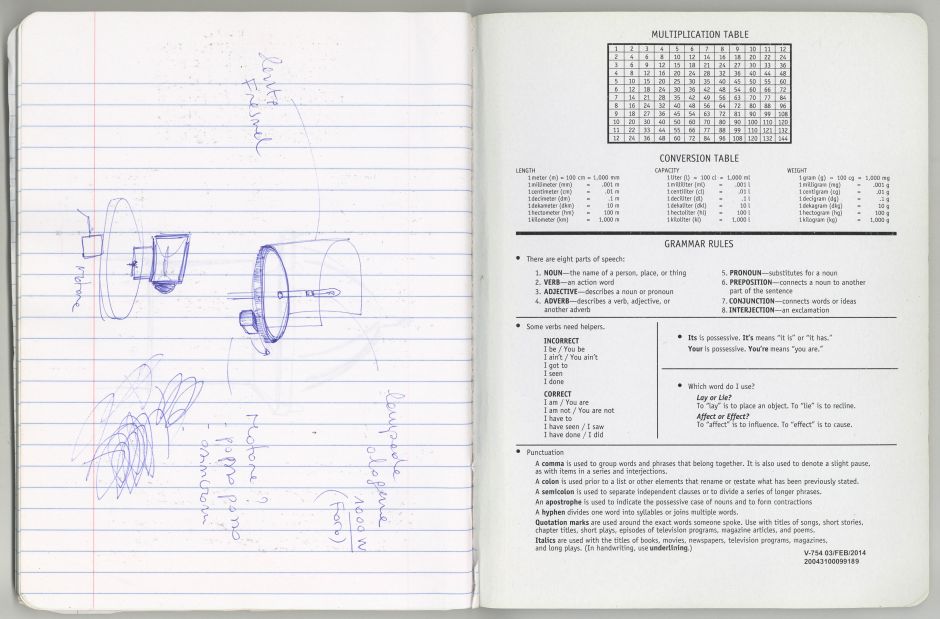 lente
Fresnel
Motore
lampade
alogene
1000 W
(Faro)
Motore?
MULTIPLICATION TABLE
1 2 3 4 5 6 7 8 9 10 11 12
2 4 6 8 10 12 14 16 18 20 22 24
3 6 9 12 15 18 21 24 27 30 33 36
4 8 12 16 20 24 28 32 36 40 44 48
5 10 15 20 25 30 35 40 45 50 55 60
6 12 18 24 30 36 42 48 54 60 66 72
7 14 21 28 35 42 49 56 63 70 77 84
8 16 24 32 40 48 56 64 72 80 88 96
9 18 27 36 45 54 63 72 81 90 99 108
10 20 30 40 50 60 70 80 90 100 110 120
11 22 33 44 55 66 77 88 99 110 121 132
12 24 36 48 60 72 84 96 108 120 132 144
CONVERSION TABLE
LENGTH
1 meter (m) = 100 cm = 1,000 mm
1 millimeter (mm) = .001 m
1 centimeter (cm) = .01 m
1 decimeter (dm) = .1 m
1 dekameter (dkm) = 10 m
1 hectometer (hm) = 100 m
1 kilometer (km) = 1,000 m
CAPACITY
1 liter (l) = 100 cl = 1,000 ml
1 milliliter (ml) = .001 l
1 centiliter (cl) = .01 l
1 deciliter (dl) = .1 l
1 dekaliter (dkl) = 10 l
1 hectoliter (hl) = 100 l
1 kiloliter (kl) = 1,000 l
WEIGHT
1 gram (g) = 100 cg = 1,000 mg
1 milligram (mg) = .001 g
1 centigram (cg) = .01 g
1 decigram (dg) = .1 g
1 dekagram (dkg) = 10 g
1 hectogram (hg) = 100 g
1 kilogram (kg) = 1,000 g
GRAMMAR RULES
• There are eight parts of speech:
1. NOUN—the name of a person, place, or thing
2. VERB—an action word
3. ADJECTIVE—describes a noun or pronoun
4. ADVERB—describes a verb, adjective, or
another adverb
5. PRONOUN—substitutes for a noun
6. PREPOSITION—connects a noun to another
part of the sentence
7. CONJUNCTION—connects words or ideas
8. INTERJECTION—an exclamation
• Some verbs need helpers.
INCORRECT
I be / You be
I ain't / You ain't
I got to
I seen
I done
CORRECT
I am / You are
I am not / You are not
I have to
I have seen / I saw
I have done / I did
• Its is possessive. It's means "it is" or "it has."
Your is possessive. You're means "you are."
• Which word do I use?
Lay or Lie?
To "lay" is to place an object. To "lie" is to recline.
Affect or Effect?
To "affect" is to influence. To "effect" is to cause.
• Punctuation
A comma is used to group words and phrases that belong together. It is also used to denote a slight pause,
as with items in a series and interjections.
A colon is used prior to a list or other elements that rename or restate what has been previously stated.
A semicolon is used to separate independent clauses or to divide a series of longer phrases.
An apostrophe is used to indicate the possessive case of nouns and to form contractions
A hyphen divides one word into syllables or joins multiple words.
Quotation marks are used around the exact words someone spoke. Use with titles of songs, short stories,
chapter titles, short plays, episodes of television programs, magazine articles, and poems.
Italics are used with the titles of books, movies, newspapers, television programs, magazines,
and long plays. (In handwriting, use underlining.)
V-754 03/FEB/2014
20043100099189